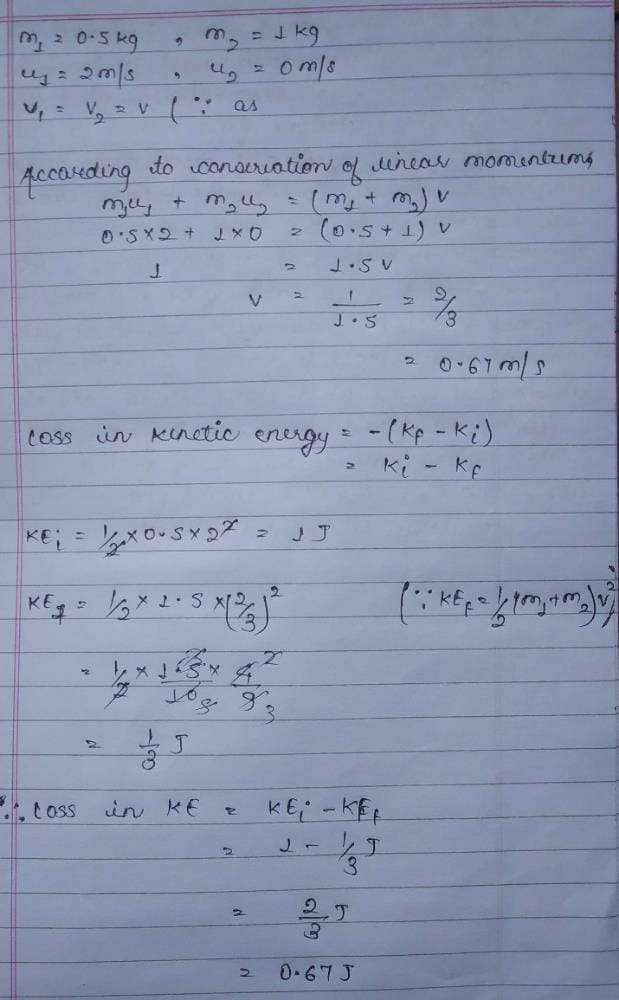 m₁ = 0.5 kg , m₂ = 1 kg
u₁ = 2 m/s , u₂ = 0 m/s
v₁ = v₂ = v ( ∵ as
According to conservation of linear momentum,
m₁u₁ + m₂u₂ = (m₁ + m₂) v
0.5 × 2 + 1 × 0 = (0.5 + 1) v
1 = 1.5 v
v = 1/1.5 = 2/3
= 0.67 m/s
Loss in kinetic energy = -(Kf - Ki)
= Ki - Kf
KEi = 1/2 × 0.5 × 2² = 1 J
KEf = 1/2 × 1.5 × (2/3)² (∵ KEf = 1/2 (m₁ + m₂) vf²
= 1/2 × 15/10 × 4/9
= 1/3 J
∴ Loss in KE = KEi - KEf
= 1 - 1/3 J
= 2/3 J
= 0.67 J